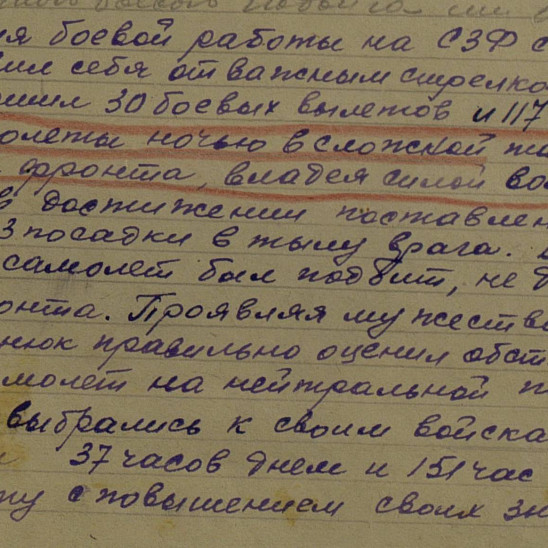 ия боевой работы на СЗФ с
вил себя отважным стрелко
ршил 30 боевых вылетов и 117
олеты ночью в сложной
фронта, владея силой во
в достижении поставлен
3 посадки в тылу врага.
самолет был подбит, не д
онта. Проявляя мужество
нюк правильно оценил обст
молет на нейтральной п
выбрались к своим войска
37 часов днем и 151 час
ту с повышением своих зн